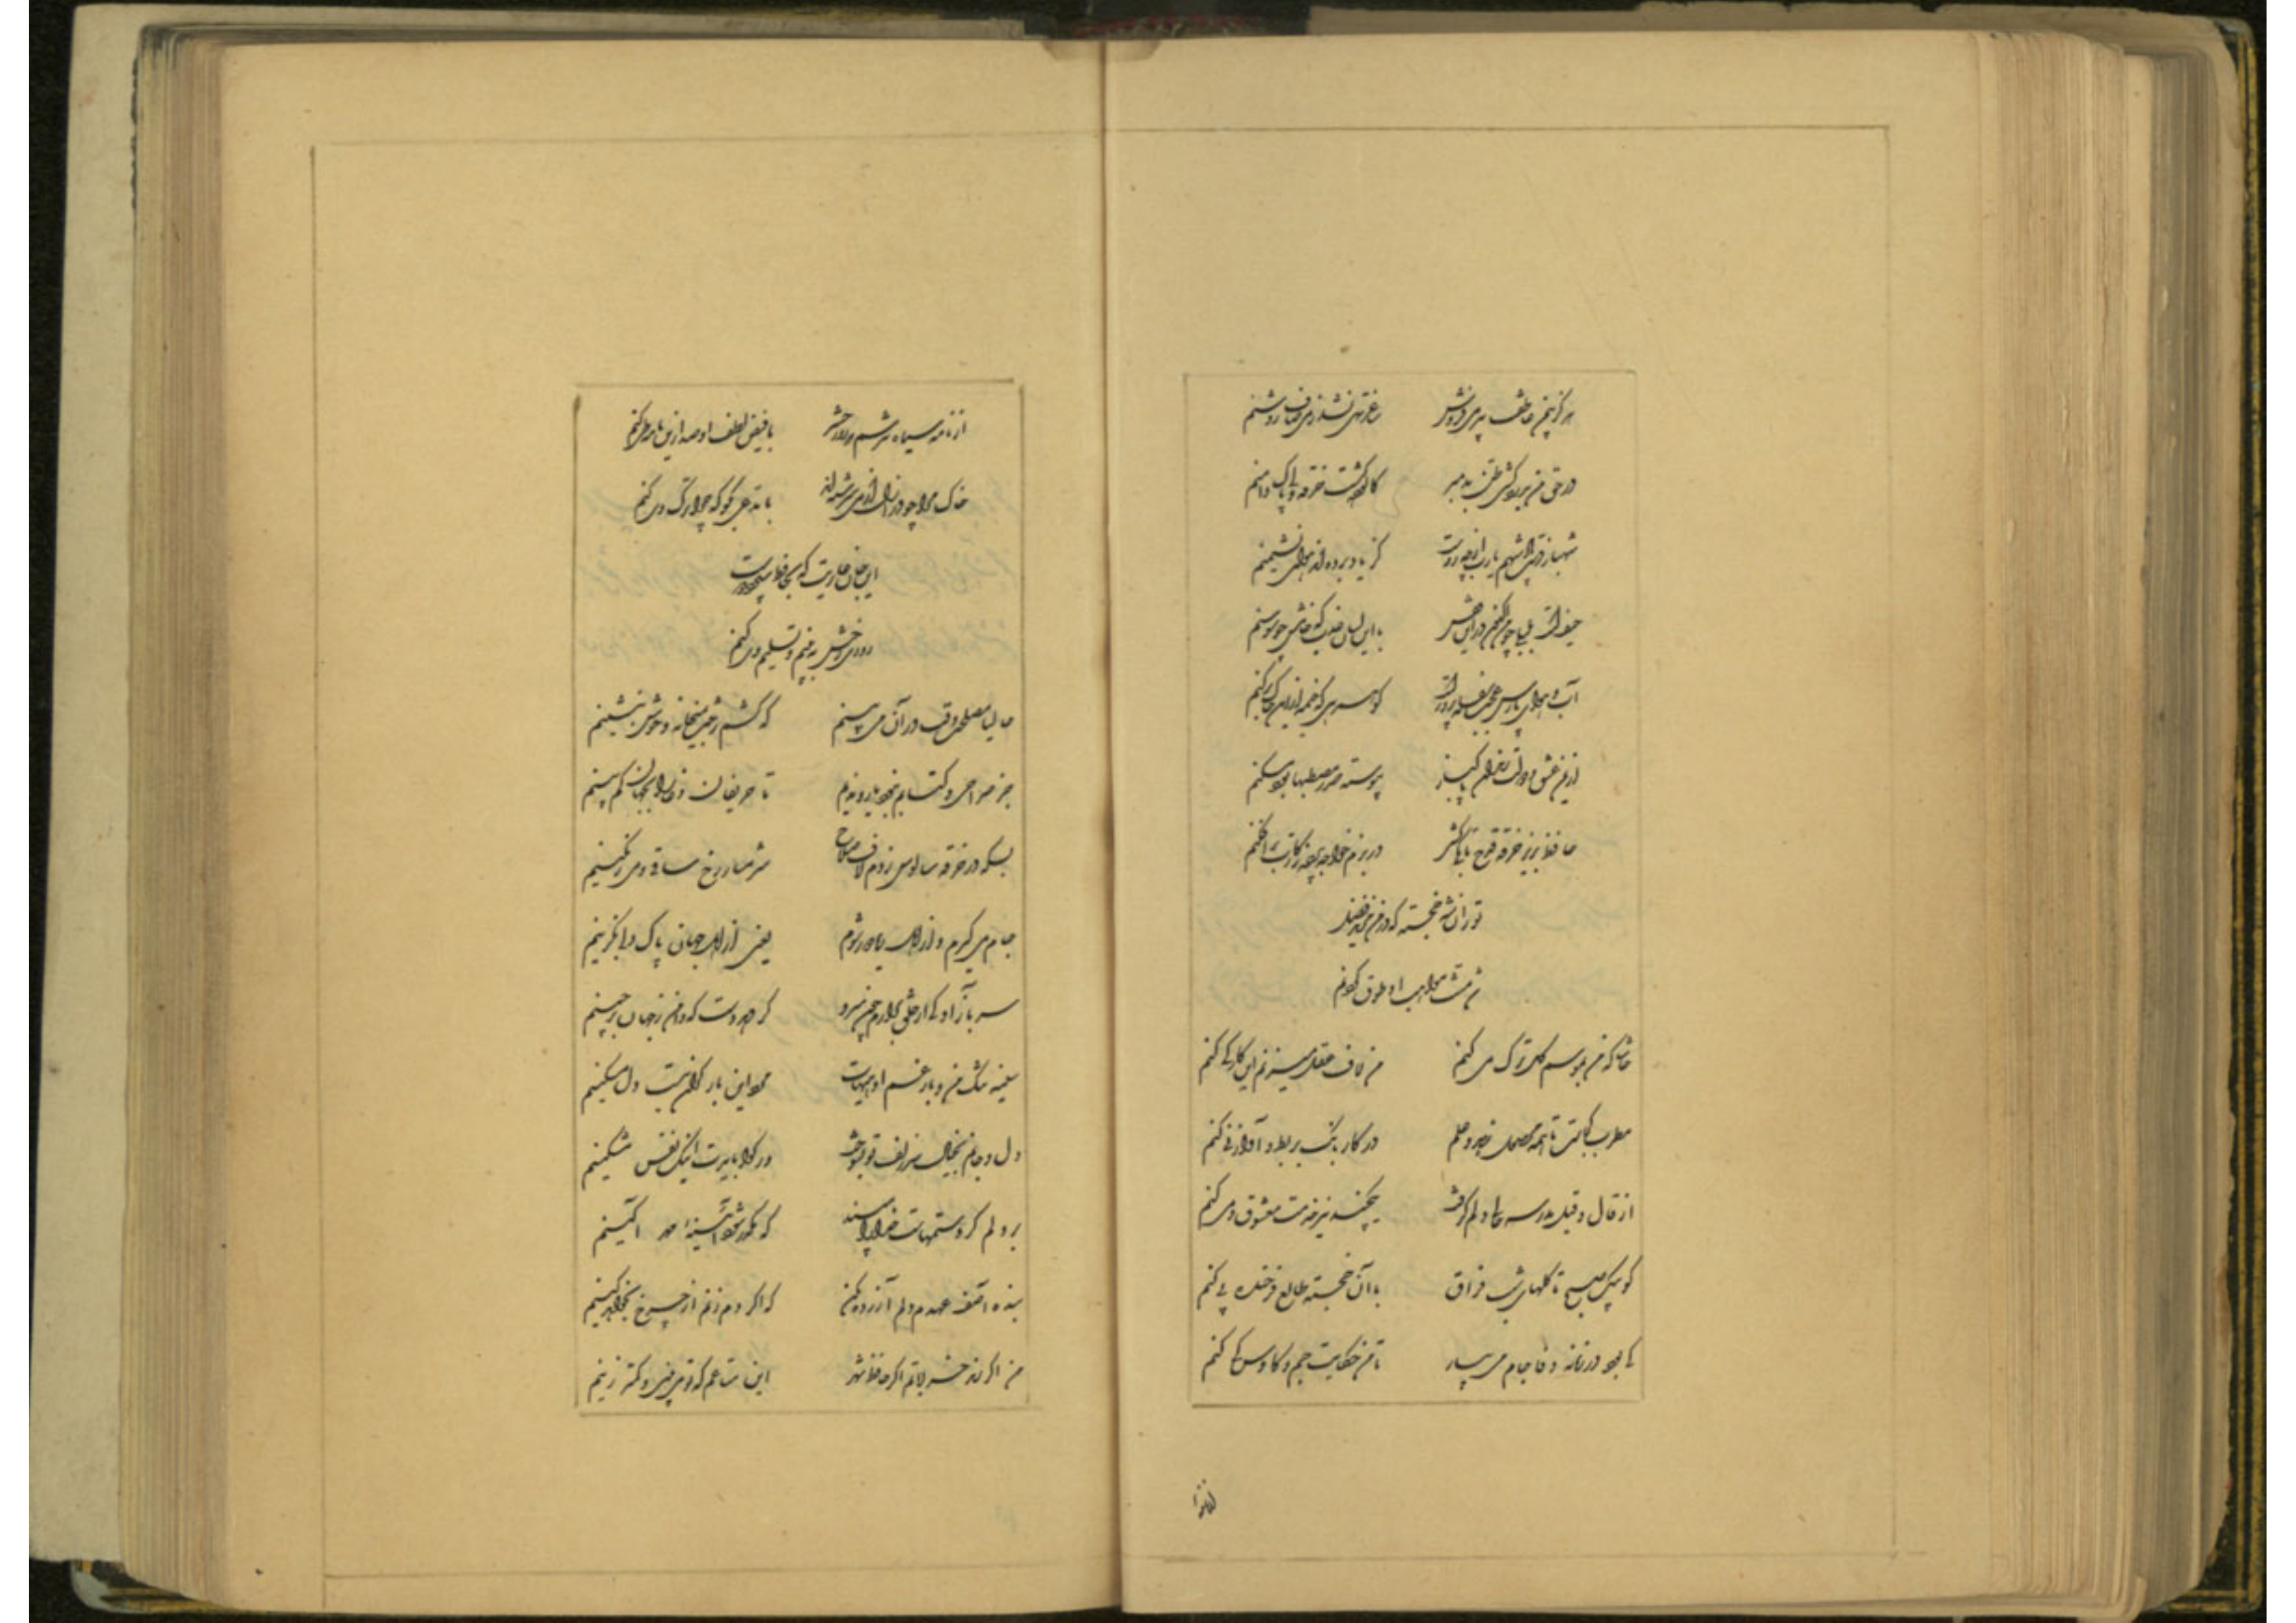 هرگز بیمن عاطفت پیر می فروش ساغر تهی نشد ز می صاف روشنم
در حق من بدردکشی ظن بد مبر کالوده گشت خرقه ولی پاک دامنم
شهباز دست پادشهم یارب از چه روست کز یاد برده اند هوای نشیمنم
حیفست بلبلی چو من اکنون درین قفس با این لسان عذب که خامش چو سوسنم
آب و هوای پارس عجب سفله پرورست کو همرهی که خیمه ازین خاک برکنم
پیوسته صدر مصطبها بود مسکنم
حافظ بزیر خرقه قدح تا بکی کشی در بزم خواجه پرده ز کارت برافکنم
تورانشه خجسته که در من یزید فضل
شد منت مواهب او طوق گردنم
حاشا که من بموسم گل ترک می کنم من لاف عقل میزنم این کار کی کنم
مطرب کجاست تا همه محصول زهد و علم در کار بانگ بربط و آواز نی کنم
از قال و قیل مدرسه حالی دلم گرفت یکچند نیز خدمت معشوق و می کنم
کو پیک صبح تا گلهای شب فراق با آن خجسته طالع فرخنده پی کنم
کی بود در زمانه وفا جام می بیار تا من حکایت جم و کاوس کی کنم
از نامه سیاه نترسم که روز حشر با فیض لطف او صد ازین نامه طی کنم
خاک مرا چو در ازل از می سرشته اند با مدعی بگو که چرا ترک می کنم
این جان عاریت که بحافظ سپرد دوست
روزی رخش ببینم و تسلیم وی کنم
حالیا مصلحت وقت در آن می بینم که کشم رخت بمیخانه و خوش بنشینم
جز صراحی و کتابم نبود یار و ندیم تا حریفان دغا را بجهان کم بینم
بسکه در خرقه سالوس زدم لاف صلاح شرمسار رخ ساقی و می رنگینم
جام می گیرم و از اهل ریا دور شوم یعنی از اهل جهان پاک دلی بگزینم
سر بآزادگی از خلق برآرم چون سرو گر دهد دست که دامن ز جهان برچینم
سینه تنگ من و بار غم او هیهات مرد این بار گران نیست دل مسکینم
دل و جانم بخیال سر زلف تو بسوخت نفس مشکینم
بر دلم گرد ستمهاست خدایا مپسند که مکدر شود آیینه مهر آیینم
بنده آصف عهدم دلم آزرده مکن که اگر دم زنم از چرخ بخواهد کینم
من اگر رند خراباتم اگر حافظ شهر این متاعم که تو می بینی و کمتر زینم